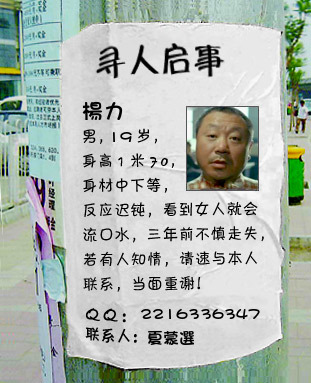 寻人启事
楊力
男，19岁，
身高1米70，
身材中下等，
反应迟钝，看到女人就会
流口水，三年前不慎走失，
若有人知情，请速与本人
联系，当面重谢！
QQ：2216336347
联系人：夏蒙選